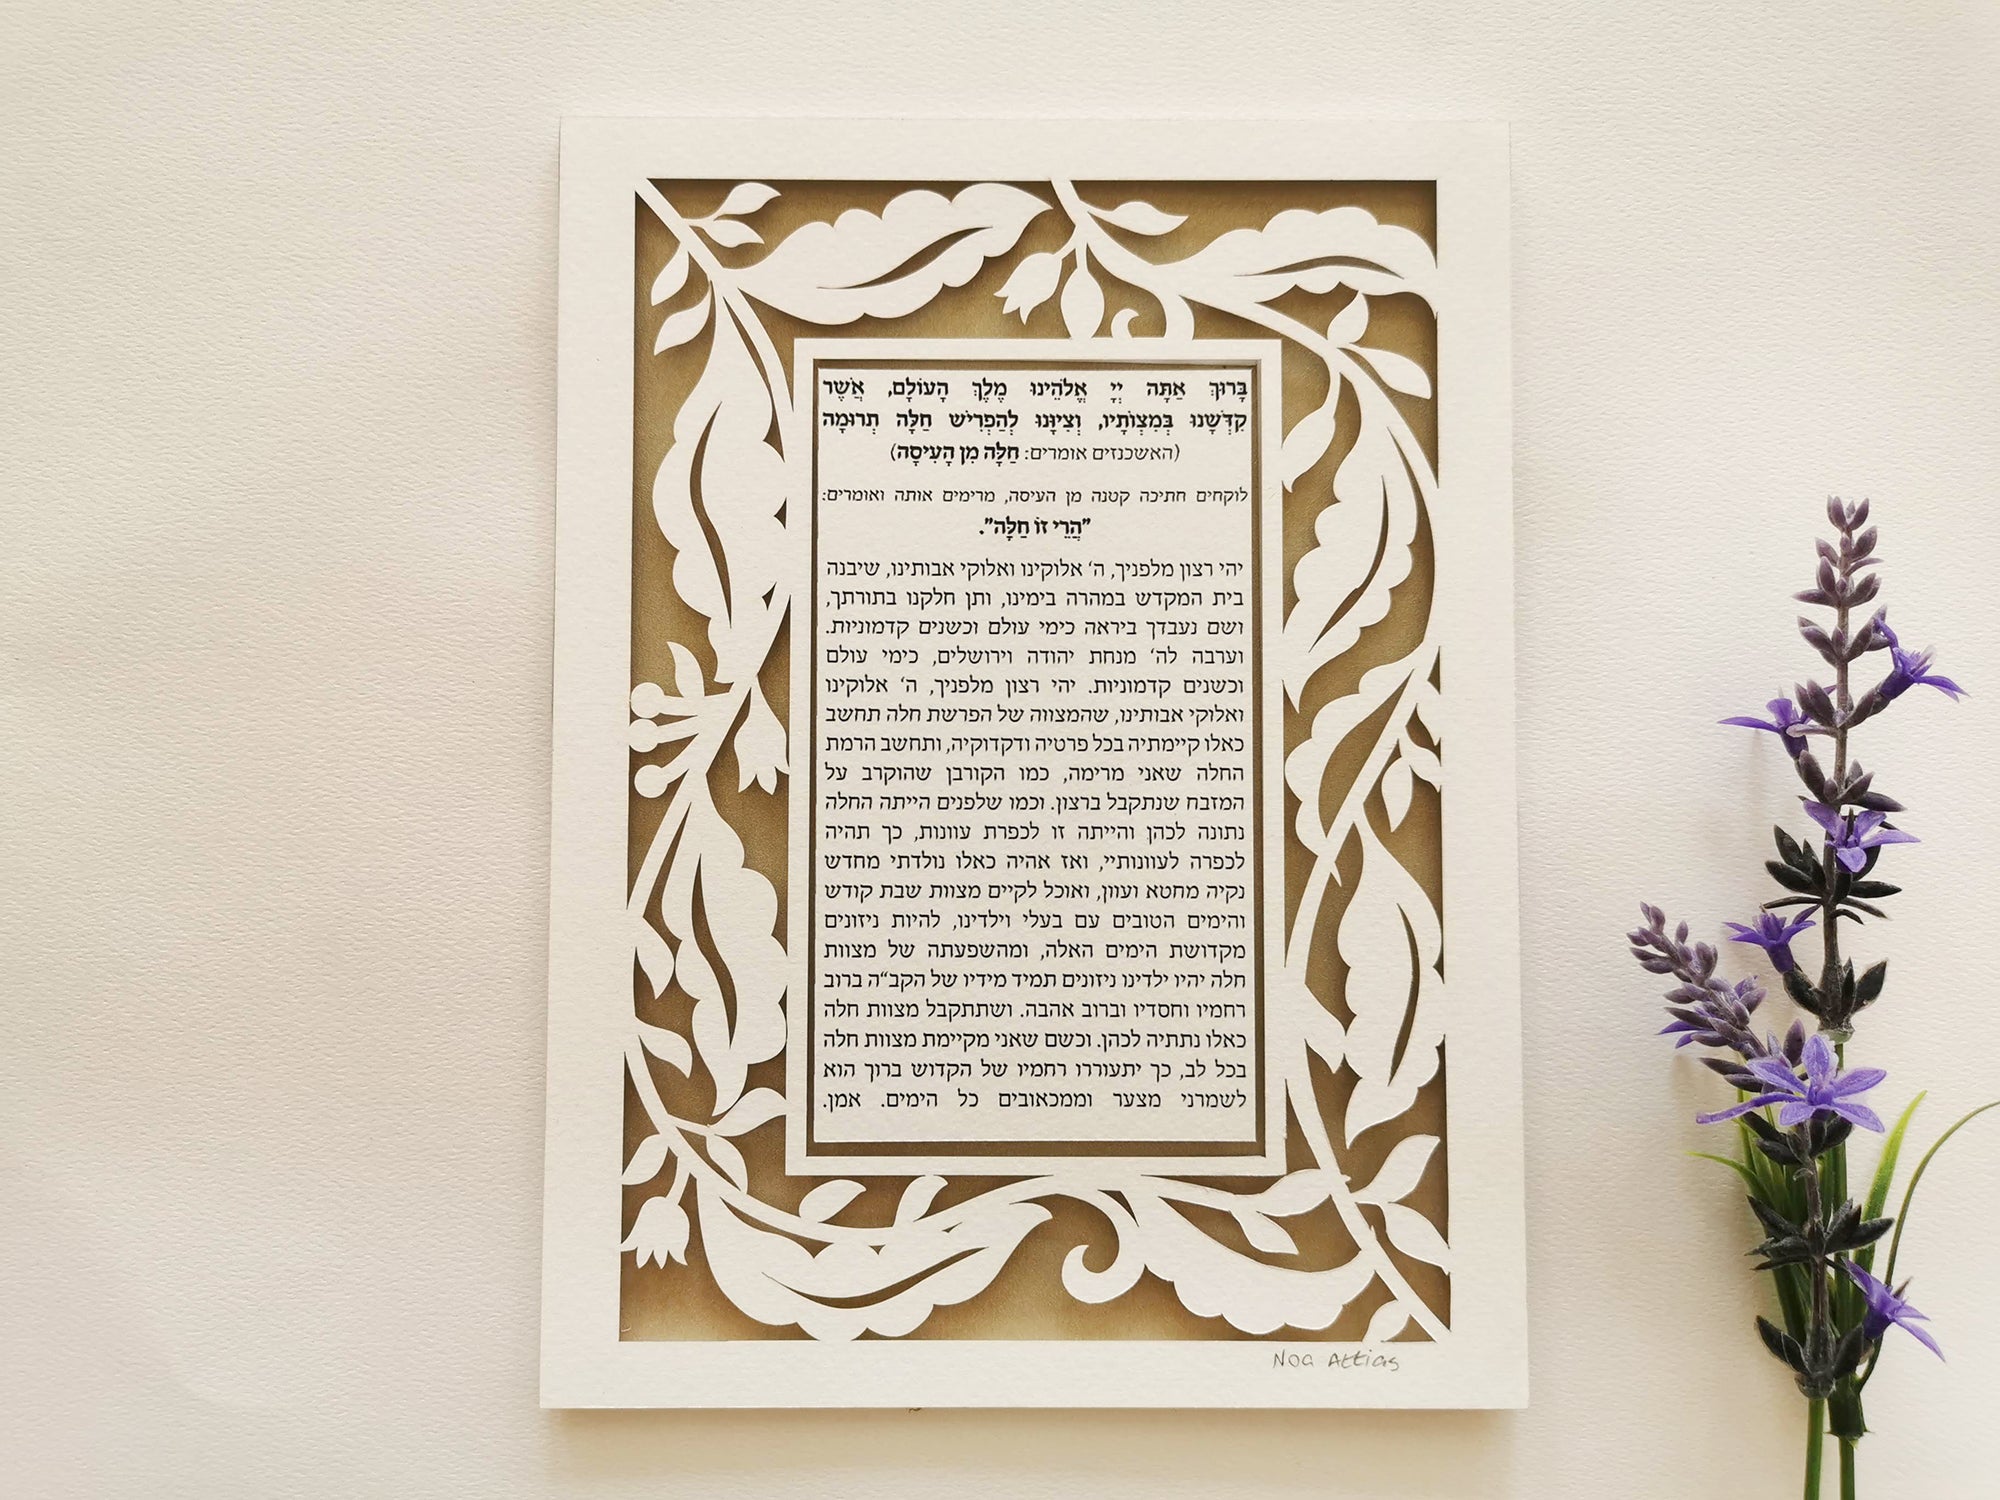 בָּרוּךְ אַתָּה יְיָ אֱלֹהֵינוּ מֶלֶךְ הָעוֹלָם, אֲשֶׁר
קִדְּשָׁנוּ בְּמִצְוֹתָיו, וְצִיוָּנוּ לְהַפְרִישׁ חַלָּה תְרוּמָה
(האשכנזים אומרים: חַלָּה מִן הָעִיסָה)
לוקחים חתיכה קטנה מן העיסה, מרימים אותה ואומרים:
"הֲרֵי זוֹ חַלָּה".
יהי רצון מלפניך, ה' אלוקינו ואלוקי אבותינו, שיבנה
בית המקדש במהרה בימינו, ותן חלקנו בתורתך,
ושם נעבדך ביראה כימי עולם וכשנים קדמוניות.
וערבה לה' מנחת יהודה וירושלים, כימי עולם
וכשנים קדמוניות. יהי רצון מלפניך, ה' אלוקינו
ואלוקי אבותינו, שהמצווה של הפרשת חלה תחשב
כאלו קיימתיה בכל פרטיה ודקדוקיה, ותחשב הרמת
החלה שאני מרימה, כמו הקורבן שהוקרב על
המזבח שנתקבל ברצון. וכמו שלפנים הייתה החלה
נתונה לכהן והייתה זו לכפרת עוונות, כך תהיה
לכפרה לעוונותיי, ואז אהיה כאלו נולדתי מחדש
נקיה מחטא ועוון, ואוכל לקיים מצוות שבת קודש
והימים הטובים עם בעלי וילדינו, להיות ניזונים
מקדושת הימים האלה, ומהשפעתה של מצוות
חלה יהיו ילדינו ניזונים תמיד מידיו של הקב"ה ברוב
רחמיו וחסדיו וברוב אהבה. ושתתקבל מצוות חלה
כאלו נתתיה לכהן. וכשם שאני מקיימת מצוות חלה
בכל לב, כך יתעוררו רחמיו של הקדוש ברוך הוא
לשמרני מצער וממכאובים כל הימים. אמן.
Noa Attias